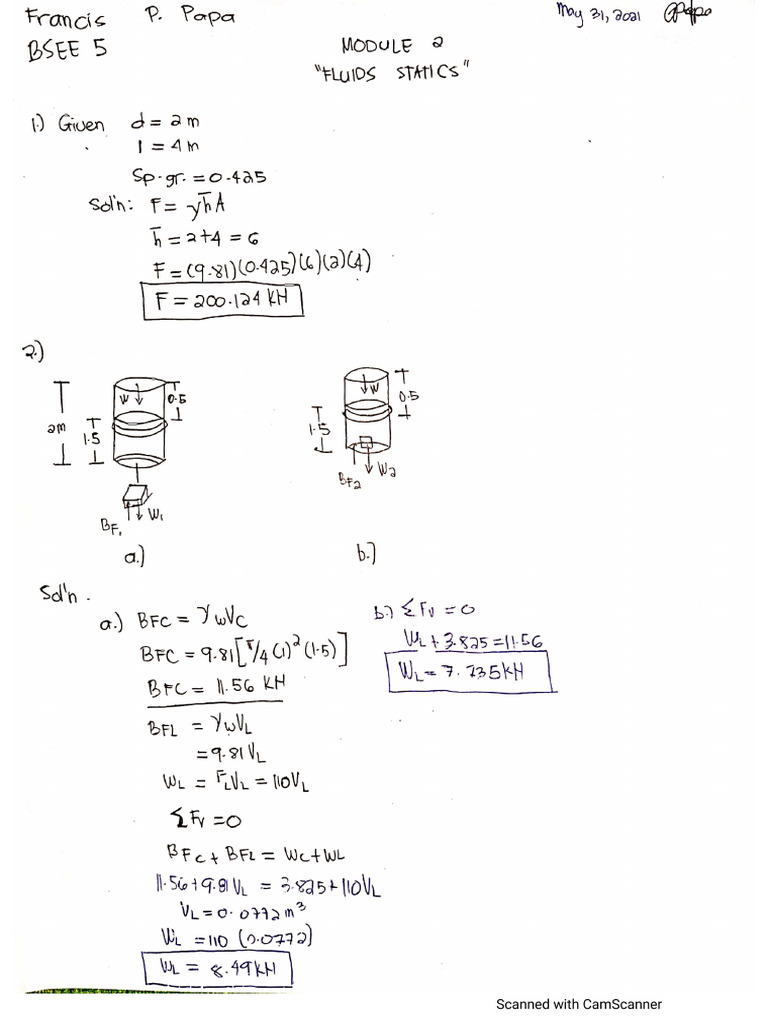 Francis P. Papa
May 31, 2021
BSEE 5
MODULE 2
"FLUIDS STATICS"
1.) Given d = 2m
l = 4m
Sp.gr. = 0.425
Sol'n: F = γh̄A
h̄ = 2+4 = 6
F = (9.81)(0.425)(6)(2)(4)
F = 200.124 KH
2.)
2m
1.5
W
0.5
BF1
W1
a.)
1.5
W
0.5
BF2
W2
b.)
Sol'n.
a.) BFC = γwVc
BFC = 9.81[π/4(1)²(1.5)]
BFC = 11.56 KH
BFL = γwVL
= 9.81VL
WL = FLVL = 110VL
ΣFv = 0
BFc + BFL = Wc + WL
11.56 + 9.81VL = 3.825 + 110VL
VL = 0.0772m³
WL = 110 (0.0772)
WL = 8.49KH
b.) ΣFv = 0
WL + 3.825 = 11.56
WL = 7.735KH
Scanned with CamScanner